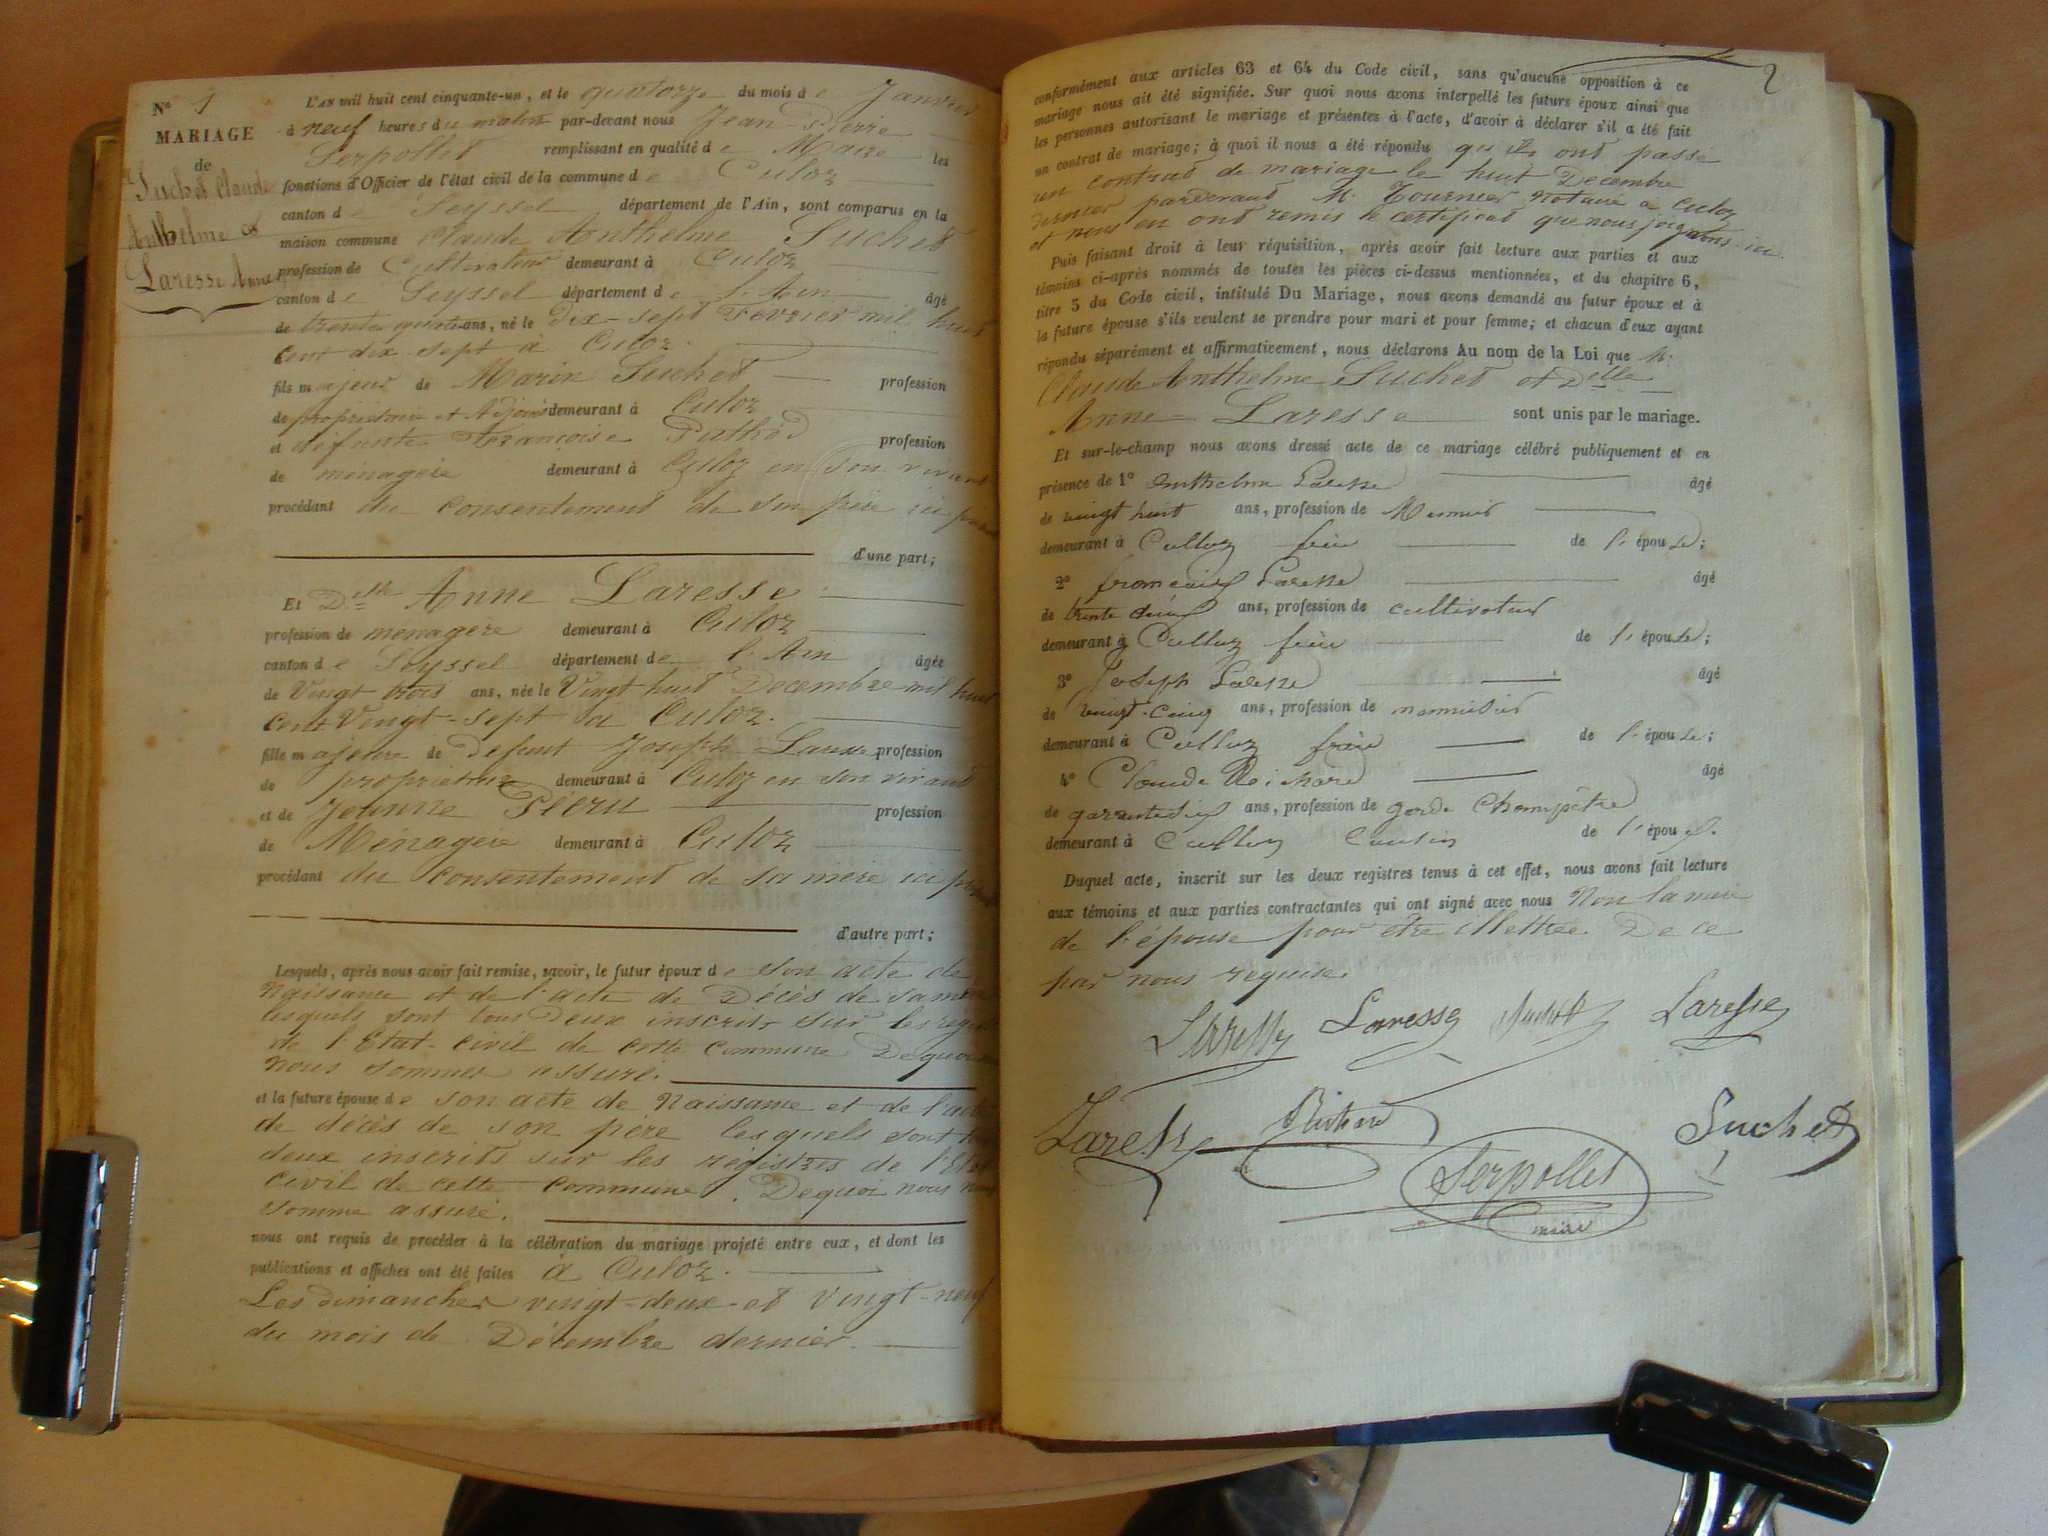 N° 1
MARIAGE
de
Suchet Claude
Anthelme et
Laresse Anne
L'AN mil huit cent cinquante-un, et le quatorze du mois de Janvier
à neuf heures du matin par-devant nous Jean Pierre
Serpollet remplissant en qualité de Maire les
fonctions d'Officier de l'état civil de la commune de Culoz
canton de Seyssel département de l'Ain, sont comparus en la
maison commune Claude Anthelme Suchet
profession de Cultivateur demeurant à Culoz
canton de Seyssel département de l'Ain âgé
de trente quatre ans, né le dix-sept Février mil huit
cent dix-sept à Culoz.
fils majeur de Marin Suchet profession
de propriétaire et Adjoint demeurant à Culoz
et defunte Françoise Puthod profession
de ménagère demeurant à Culoz en son vivant
procédant du consentement de son père ici
d'une part;
Et Delle Anne Laresse
profession de ménagère demeurant à Culoz
canton de Seyssel département de l'Ain âgée
de Vingt trois ans, née le Vingt huit Decembre mil huit
cent Vingt-sept à Culoz.
fille majeure de Defunt Joseph Laresse profession
de propriétaire demeurant à Culoz en son vivant
et de Jeanne profession
de Ménagère demeurant à Culoz
procédant du consentement de sa mère ici
d'autre part;
Lesquels, après nous avoir fait remise, savoir, le futur époux de son acte de
Naissance et de l'acte de Décès de sa mère
lesquels sont tous Deux inscrits sur les
de l'Etat-civil de cette commune Dequoi
nous sommes assuré.
et la future épouse de son acte de Naissance et de l'acte
de décès de son père lesquels sont
deux inscrits sur les régistres de l'Etat
civil de cette commune. Dequoi nous nous
somme assuré.
nous ont requis de procéder à la célébration du mariage projeté entre eux, et dont les
publications et affiches ont été faites à Culoz.
Les dimanches vingt-deux et Vingt-neuf
du mois de Décembre dernier.
2
conformément aux articles 63 et 64 du Code civil, sans qu'aucune opposition à ce
mariage nous ait été signifiée. Sur quoi nous avons interpellé les futurs époux ainsi que
les personnes autorisant le mariage et présentes à l'acte, d'avoir à déclarer s'il a été fait
un contrat de mariage; à quoi il nous a été répondu qu'ils ont passé
un contrat de mariage le huit Decembre
dernier pardevant Mr Tournier Notaire à Culoz
et nous en ont remis le certificat que nous joignons ici
Puis faisant droit à leur réquisition, après avoir fait lecture aux parties et aux
témoins ci-après nommés de toutes les pièces ci-dessus mentionnées, et du chapitre 6,
titre 5 du Code civil, intitulé Du Mariage, nous avons demandé au futur époux et à
la future épouse s'ils veulent se prendre pour mari et pour femme; et chacun d'eux ayant
répondu séparément et affirmativement, nous déclarons Au nom de la Loi que Mr
Claude Anthelme Suchet et Delle
Anne Laresse sont unis par le mariage.
Et sur-le-champ nous avons dressé acte de ce mariage célébré publiquement et en
présence de 1° Anthelme Laresse âgé
de vingt huit ans, profession de
demeurant à Culloz frère de l'épouse;
2° francois Laresse âgé
de trente deux ans, profession de cultivateur
demeurant à Culloz frère de l'épouse;
3° Joseph Laresse âgé
de vingt-cinq ans, profession de menuisier
demeurant à Culloz frère de l'épouse;
4° Claude Richard âgé
de ans, profession de garde Champêtre
demeurant à Culloz Cousin de l'épou
Duquel acte, inscrit sur les deux registres tenus à cet effet, nous avons fait lecture
aux témoins et aux parties contractantes qui ont signé avec nous Non la mère
de l'épouse pour être illettrée. De ce
par nous requise.
Laresse Laresse Suchet Laresse
Laresse Richard Suchet
Serpollet
maire